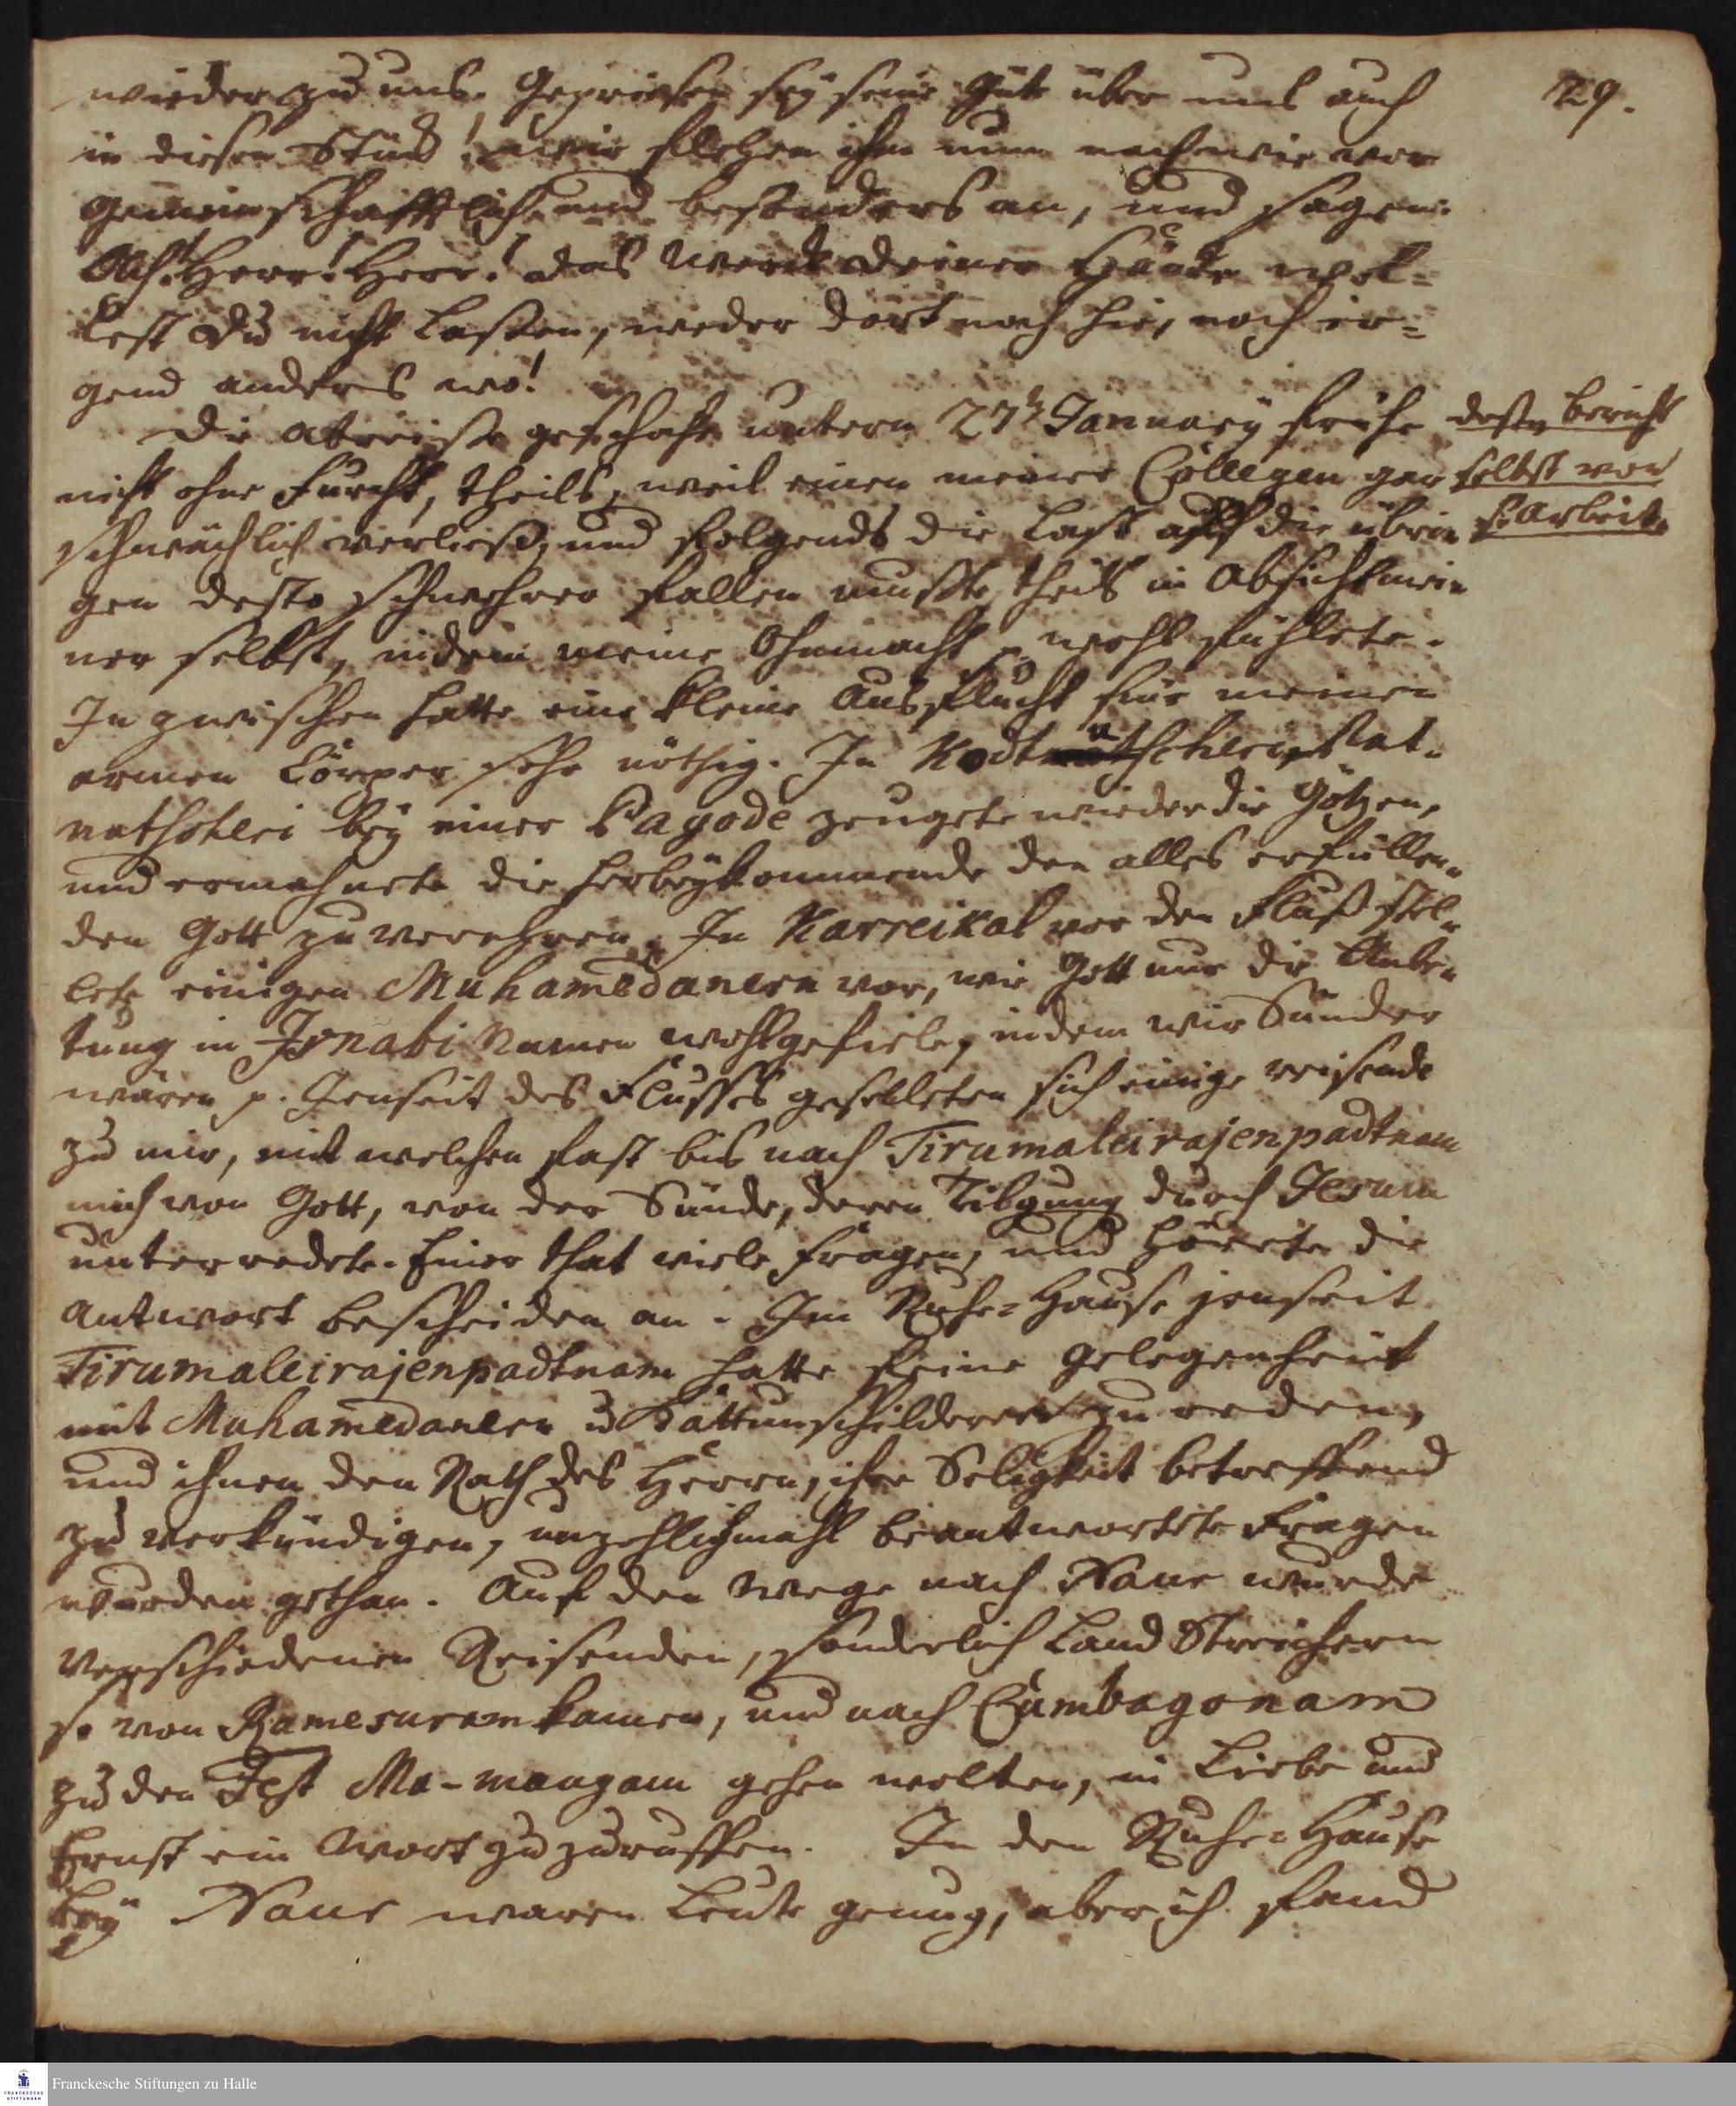 29.
wieder zu uns. Gepriesen sey seine Güte über uns auch
in diesen Stück! wir flehen ihn nun nach wie vor
gemeinschafftlich und besonders an, und sagen:
Ach! Herr! Herr! das Werck deiner Hände wol-
lest du nicht laßen, weder dort noch hie, noch ir-
gend anders wo!
Die Abreise geschahe untern 27t January frühe
deßen bericht
nicht ohne Furcht, theils, weil einen meiner Collegen gar
selbst von
schwächlich verließ, und folgends die Last auff die übri-
s. Arbeit.
gen desto schwehrer fallen muste, theils in Absicht mei-
ner selbst, indem meine Ohnmacht wohl fühlete.
In zwischen hatte eine kleine Ausflucht für meinen
armen Cörper sehr nöthig. In
natscheri bey einer Pagode zeugete wieder die Götzen,
und ermahnete die herbeykommende den alles erfüllen-
den Gott zu verehren. In Karreikal vor den Fluß stel-
lete einigen Muhamedanern vor, wie Gott nur die Anbe-
tung in Namen wohlgefiele, indem wir Sünder
wären p. Jenseit des Flusses geselleten sich einige reisende
zu mir, mit welchen fast bis nach Tirumaleirajenpadtnam
mich von Gott, von der Sünde, deren Tilgung durch Jesum
unterredete. Einer that viele Fragen, und hörete die
Antwort bescheiden an. Im Ruhe-Hause jenseit
Tirumaleirajenpadtnam hatte feine Gelegenheit
mit Muhamedanern u Kattunschilderern zu reden,
und ihnen den Rath des Herrn, ihre Seligkeit betreffend
zu verkündigen, unzehlichmahl beantwortete Fragen
wurden gethan. Auf den Wege nach Naur wurde
verschiedenen Reisenden, sonderlich Land Streichern
so von Ramesuram kamen, und nach Cumbagonam
zu den Fest Ma-mangam gehen wolten, in Liebe und
Ernst ein Wort zu zuruffen. In den Ruhe-Hause
bey Naur waren Leute genug, aber ich fand
Franckesche Stiftungen zu Halle